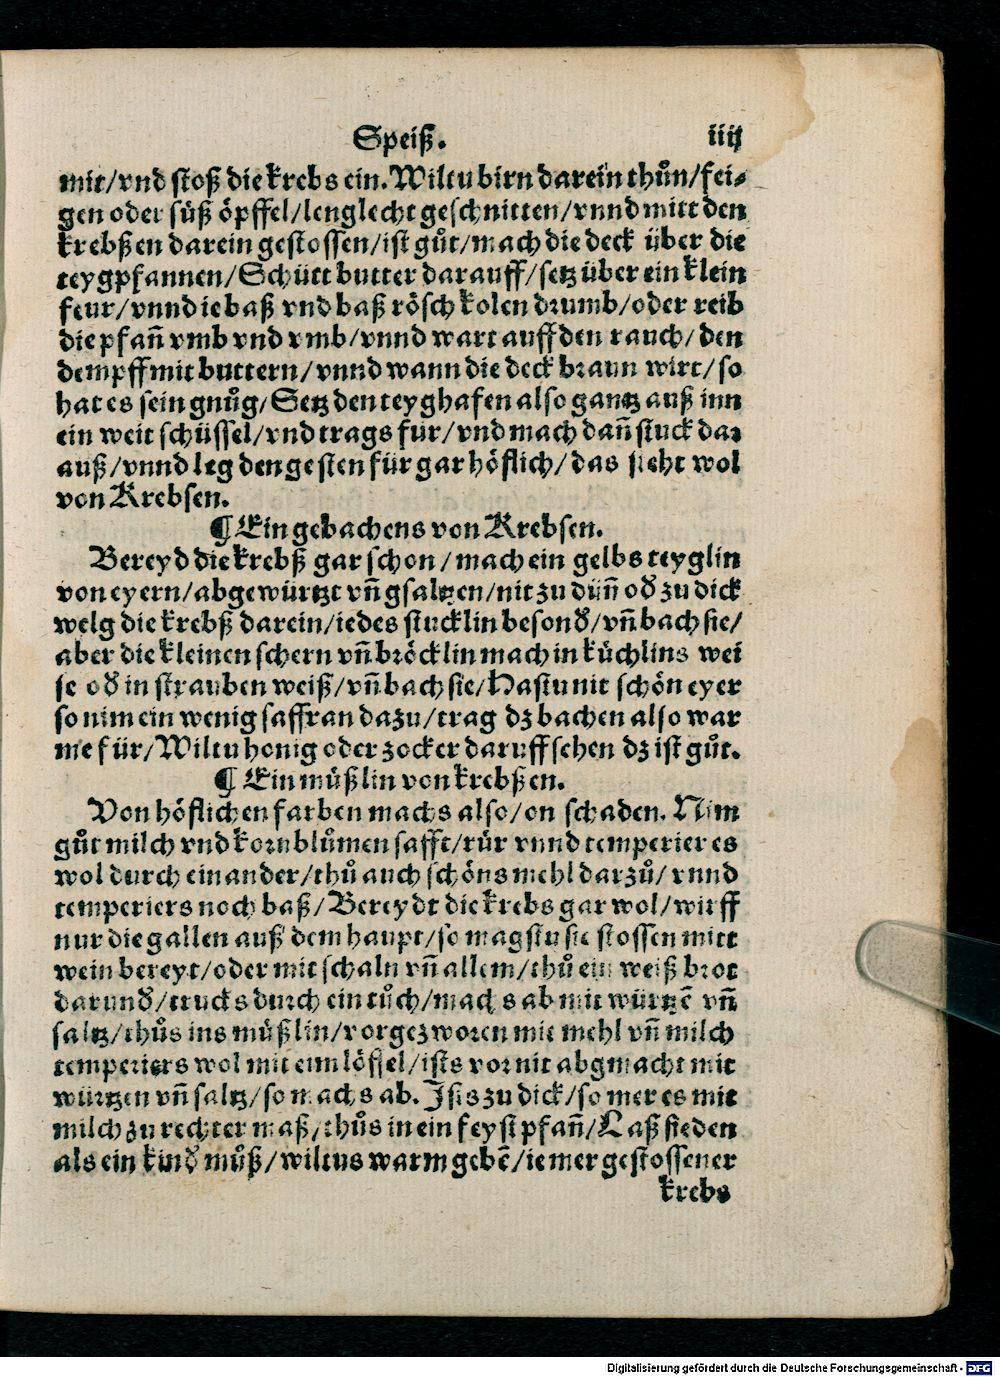 Speiß. iiij
mit/vnd stoß die krebs ein. Wiltu birn darein thůn/fei⸗
gen oder süß öpffel/lenglecht geschnitten/vnnd mitt den
krebßen darein gestossen/ist gůt/mach die deck über die
teygpfannen/Schütt butter darauff/setz über ein klein
feur/vnnd ie baß vnd baß rösch kolen drumb/oder reib
die pfañ vmb vnd vmb/vnnd wart auff den rauch/den
dempff mit buttern/vnnd wann die deck braun wirt/so
hat es sein gnůg/Setz den teyghafen also gantz auß inn
ein weit schüssel/vnd trags für/vnd mach dañ stuck dar
auß/vnnd leg den gesten für gar höflich/das sieht wol
von Krebsen.
¶ Ein gebachens von Krebsen.
Bereyd die krebß gar schon/mach ein gelbs teyglin
von eyern/abgewürtzt vñ gsaltzen/nit zu düñ oď zu dick
welg die krebß darein/iedes stucklin besonď/vñ bach sie/
aber die kleinen schern vñ bröcklin mach in küchlins wei
se oď in strauben weiß/vñ bach sie/Hastu nit schön eyer
so nim ein wenig saffran dazu/trag dz bachen also war
me für/Wiltu honig oder zocker daruff sehen dz ist gůt.
¶ Ein müßlin von krebßen.
Von höflichen farben machs also/on schaden. Nim
gůt milch vnd kornblůmen safft/rür vnnd temperier es
wol durch einander/thů auch schöns mehl darzů/vnnd
temperiers noch baß/Bereydt die krebs gar wol/wirff
nur die gallen auß dem haupt/so magstu sie stossen mitt
wein bereyt/oder mit schaln vñ allem/thů ein weiß brot
darunď/trucks durch ein tůch/machs ab mit würtzē vñ
saltz/thůs ins müßlin/vor gezworen mit mehl vñ milch
temperiers wol mit eim löffel/ists vor nit abgmacht mit
würtzen vñ saltz/so machs ab. Isis zu dick/so mer es mit
milch zu rechter maß/thůs in ein feyst pfañ/Laß sieden
als ein kinď můß/wiltus warm gebē/ie mer gestossener
krebs
Digitalisierung gefördert durch die Deutsche Forschungsgemeinschaft - DFG